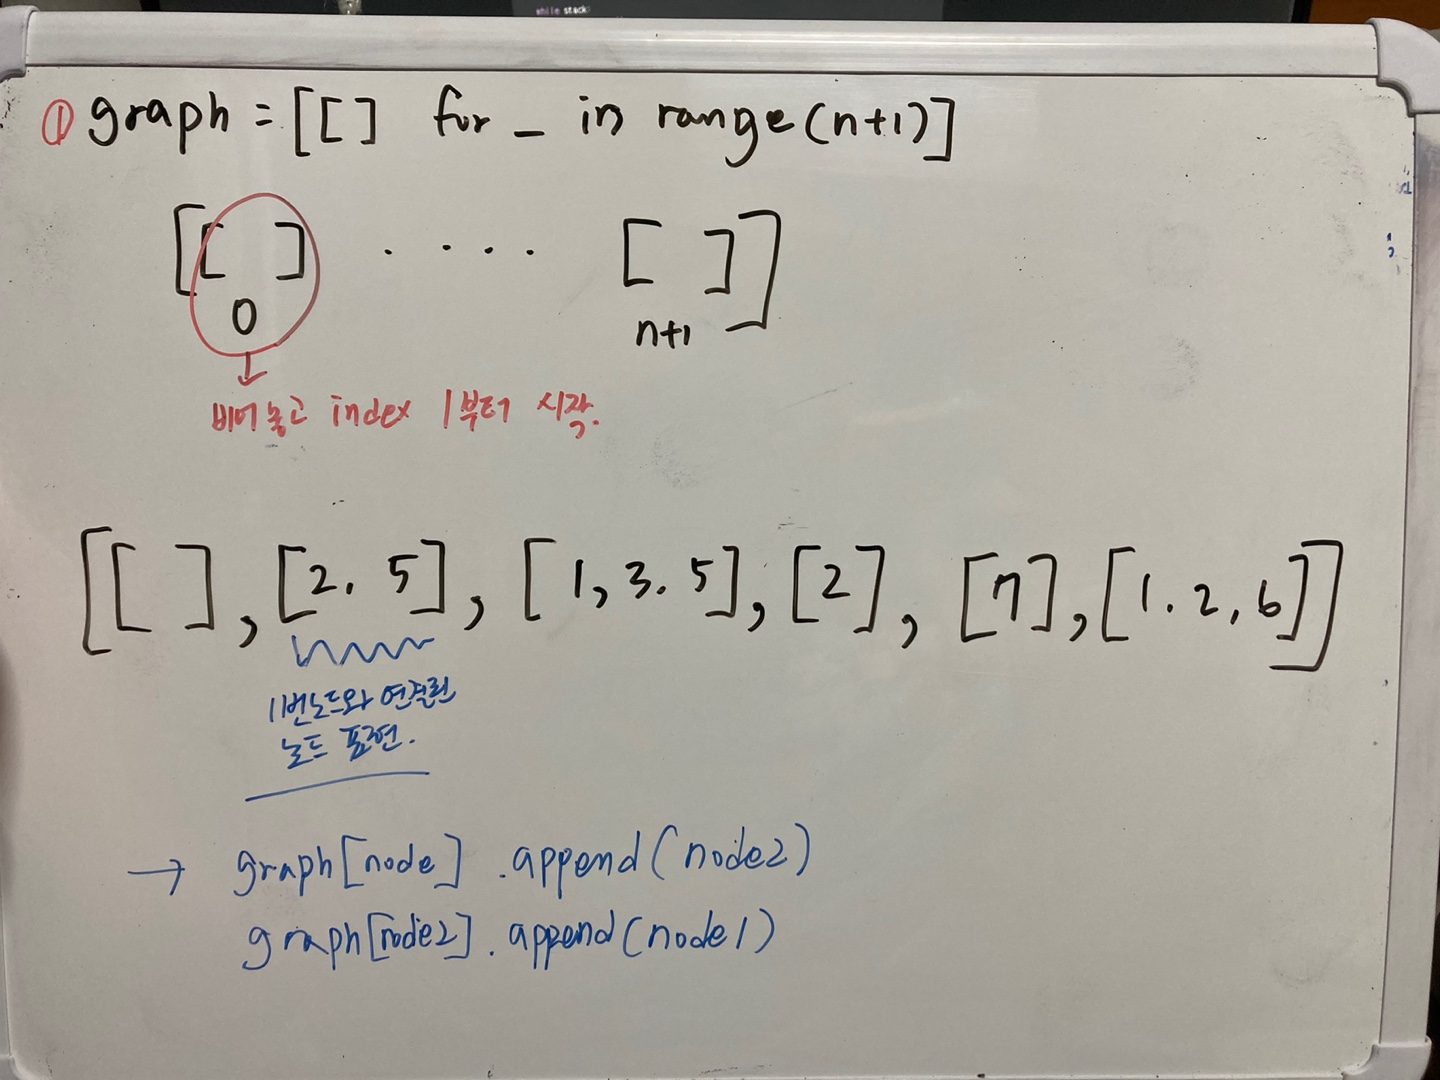 while stack:
① graph = [[] for _ in range(n+1)]
[[ ] . . . . [ ]]
0 n+1
비어놓고 index 1부터 시작.
[[ ], [2. 5], [1, 3. 5], [2], [7], [1. 2, 6]]
1번노드와 연결된
노드 표현.
→ graph[node] .append(node2)
graph[node2].append(node1)